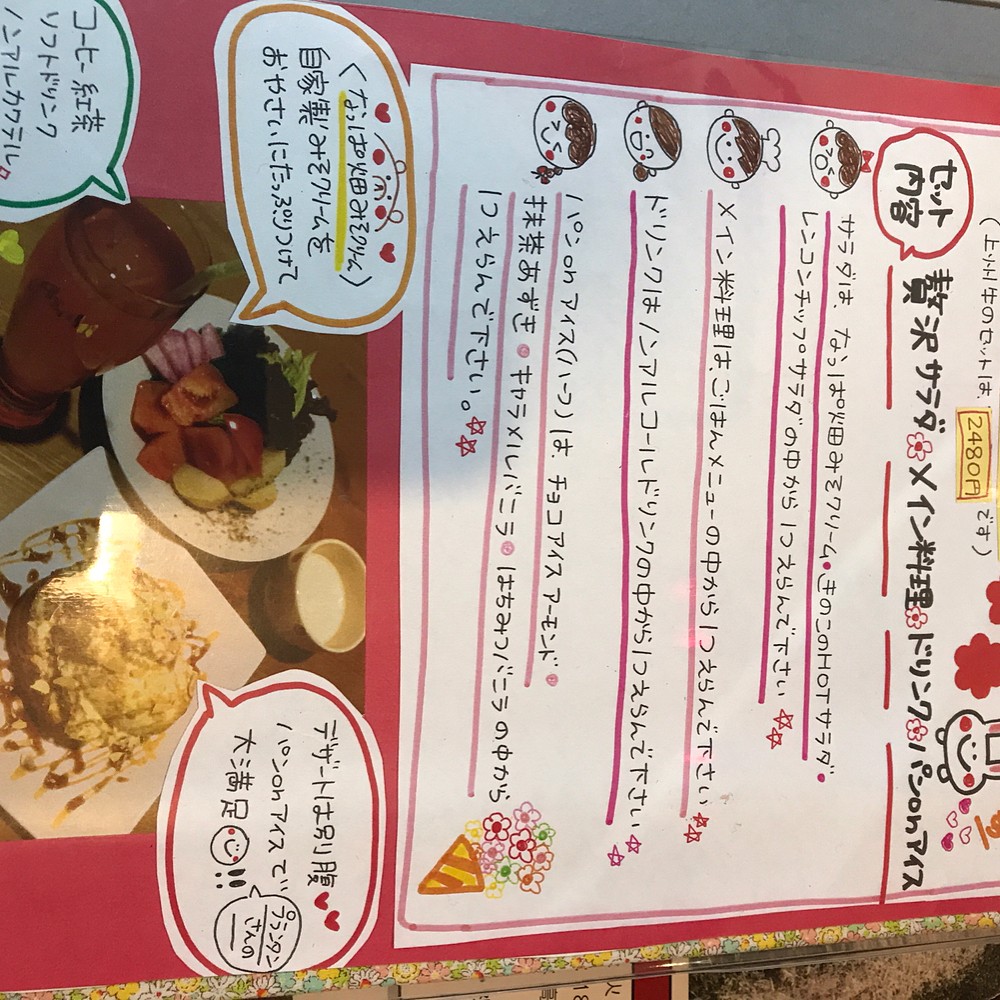 (上州牛のセットは、2480円です)
セット内容
贅沢サラダ メイン料理 ドリンク パンonアイス
サラダは、なっぱ畑みそクリーム・きのこのHOTサラダ・
レンコンチップサラダの中から1つえらんで下さい
メイン料理は、ごはんメニューの中から1つえらんで下さい
ドリンクはノンアルコールドリンクの中から1つえらんで下さい
パンonアイス(ハーフ)は、チョコアイスアーモンド
抹茶あずき キャラメルバニラ はちみつバニラの中から
1つえらんで下さい。
〈なっぱ畑みそクリーム〉
自家製みそクリームを
おやさいにたっぷりつけて
コーヒー 紅茶
ソフトドリンク
ノンアルカクテル
デザートは別り腹
パンonアイスで
大満足!!
プランタン
さんの